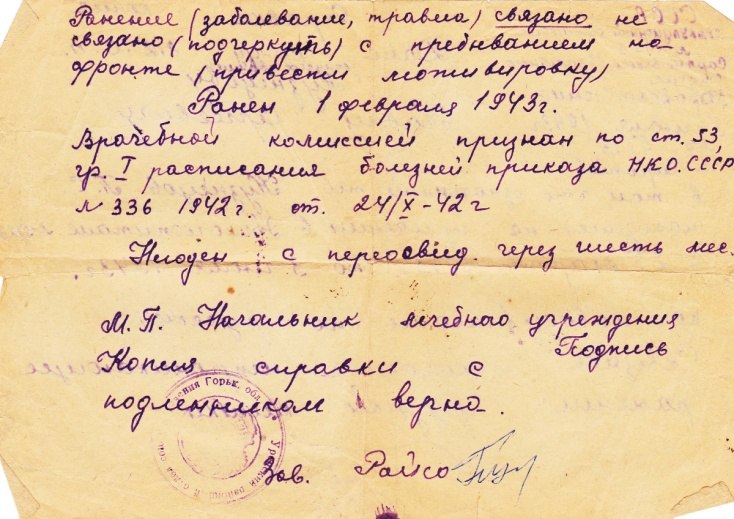 Ранение (заболевание, травма) связано не
связано (подчеркнуть) с пребыванием на
фронте (привести мотивировку)
Ранен 1 февраля 1943г.
Врачебной комиссией признан по ст. 53,
гр. I расписания болезней приказа НКО.СССР
№ 336 1942г. от. 24/X-42г
Негоден с переосвид. через шесть мес.
М.П. Начальник лечебнао учреждения
Подпись
Копия справки с
подленником верна.
Зав. Райсо
ения Горьк. обл
Уренский район